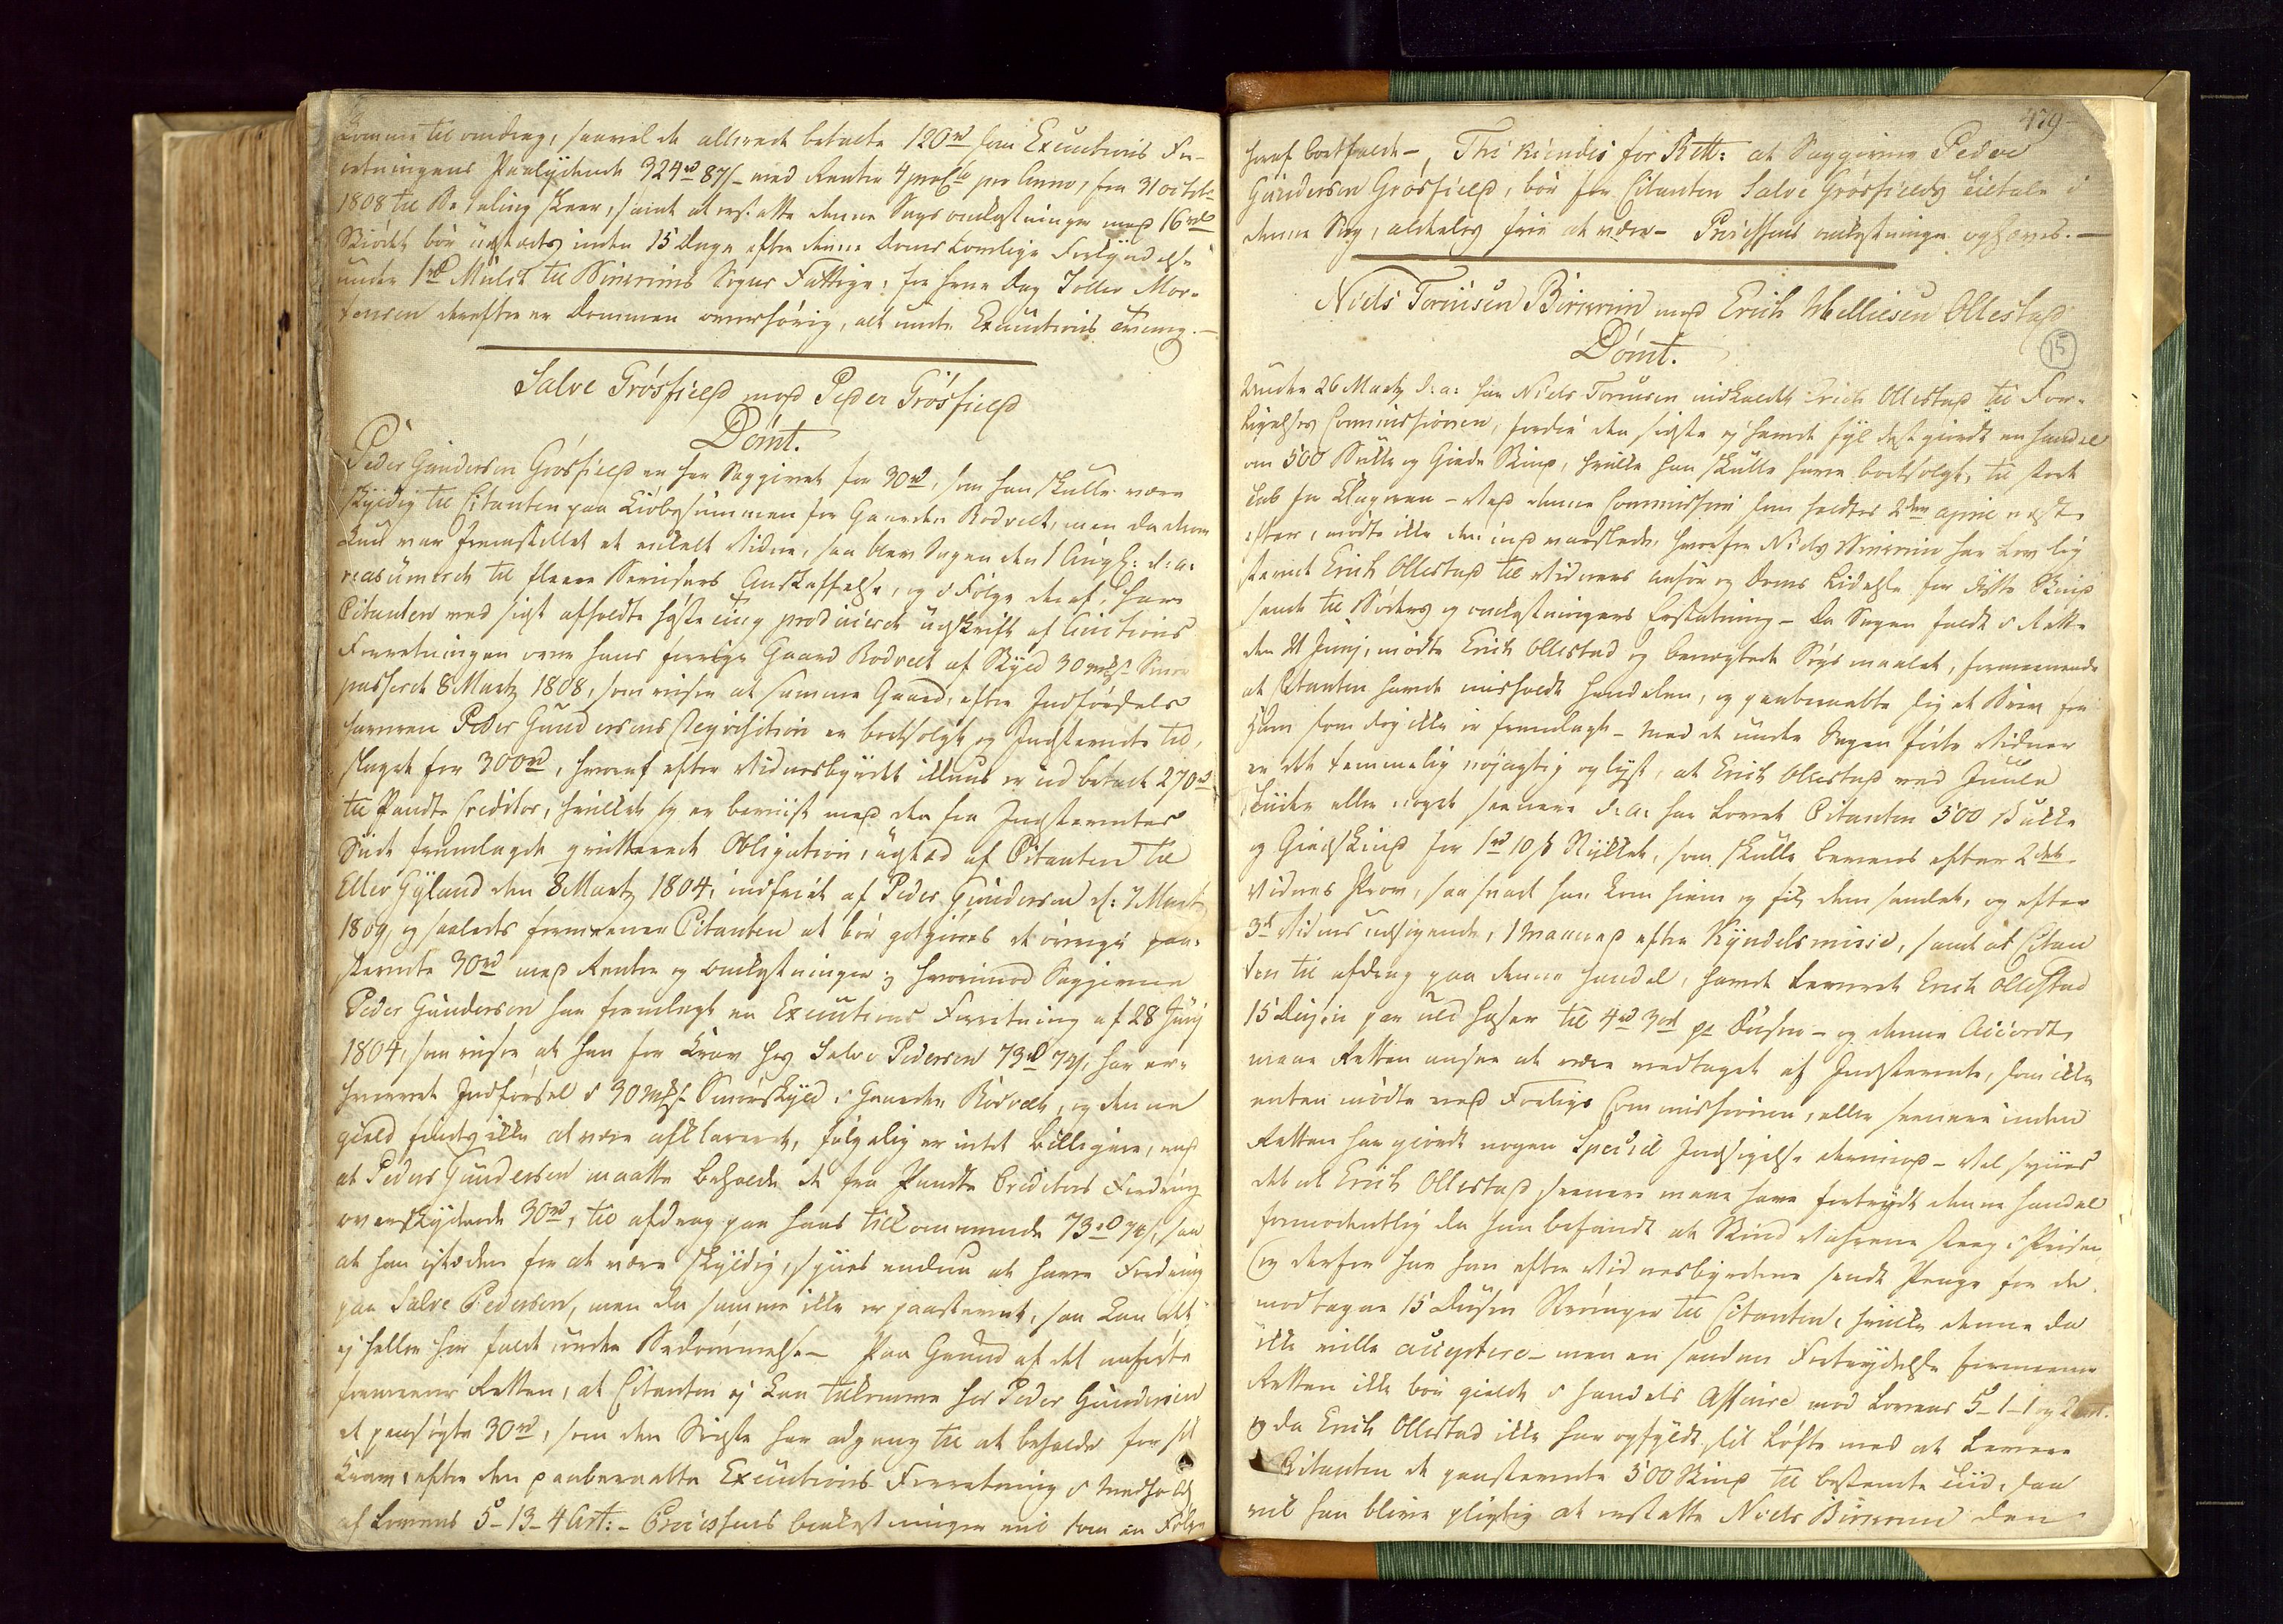 komme til omdrag, saavel de allerede betalte 120 rd som Executions For-
retningens Paalydende 324 rd 87 s med Renter 4 proC. pro Anno, fra 31 octob:
1808 til Betaling skeer, samt at erstatte denne Sags omkostninger med 16 rd
Skiødet bør udstædes inden 15 Dage efter denne Doms lovlige Forkyndelse
under 1 rd Mulct til Sognets Fattige, for hver Dag Tollev Mor-
tensen derefter er Dommen overhørig, alt under Executions Tvang. –
Salve Grøsfield mod Peder Grøsfield
Dømt.
Peder Gundersen Grøsfield er her Saggivet for 30 rd, som han skulle være
skyldig til Citanten paa Kiøbesummen for Gaarden Rødveelt, men da denne
kun var fremstillet et enkelt Vidne, saa blev Sagen den 1 Aug: d: a:
reasumeret til fleere Beviisers Anskaffelse, og i Følge deraf, har
Citanten ved sidst afholdte høste ting produceret udskrift af Auctions
Forretningen over hans forrige Gaard Rødveelt af Skyld 30 mks. Smør
passeret 8 Martz 1808, som viser at samme Gaard, efter Indførsels
haveren Peder Gundersens Reqvisition er bortsolgt og Indstevnte til-
slaget for 300 rd, hvoraf efter Vidnesbyrdet allene er udbetalt 270 rd
til Pandte Creditor, hvilket og er beviist med den fra Indstevntes
Side fremlagde qvitterede Obligation, udstæd af Citanten til
Eller Gyland den 8 Martz 1804, indfriet af Peder Gundersen d: 7 Martz
1809, og saaledes formeener Citanten at bør godgiøres de øvrige paa-
stevnte 30 rd med Renter og omkostninger; hvorimod Saggivne
Peder Gundersen har fremlagt en Executions Forretning af 28 Junj
1804, som viser at han for Krav hos Salve Pedersen 73 rd 74 s, har er-
hvervet Indførsel i 30 mks. Smørskyld i Gaarden Rødveelt, og denne
gield findes ikke at være afklareret, følgelig er intet billigere, end
at Peder Gundersen maatte beholde de fra Pandte Creditors Fordring
overskydende 30 rd, til afdrag paa hans tilkommende 73 rd 74 s, saa
at han istæden for at være skyldig, synes endnu at have Fordring
paa Salve Pedersen, men da samme ikke er paastevnt, saa kan det
ej heller her falde under Bedømmelse – Paa Grund af det anførte
formeener Retten, at Citanten ej kan tilkomme hos Peder Gundersen
de paasøgte 30 rd, som den Sidste har adgang til at beholde for sit
Krav, efter den paaberaabte Executions Forretning i Medhold
af Lovens 5-13-4 Art: – Processens Omkostninger vil som en Følge
479
heraf bortfalde –, Thi kiendes for Rett: at Saggivne Peder
Gundersen Grøsfield, bør for Citanten Salve Grøsfields tiltale i
denne Sag, aldeles frie at være – Processens omkostninger ophæves. –
Niels Tønnesen Birreim mod Erich Melliesen Ollestad
15
Dømt.
Under 26 Martz d: a: har Niels Tønnesen indkaldt Erich Ollestad til For-
ligelses Commissionen, fordi den sidste ej havde fyldestgiordt en handel
om 500 Bukke og Giede Skind, hvilke han skulle have bortsolgt, til stort
tab for Klageren – ved denne Commission som holdtes 2den april næst
efter, mødte ikke den indvarslede, hvorfor Niels Birreim har lovlig
stevnt Erich Ollestad til Vidners anhør og Doms lidelse for disse Skind
samt til Bøders og omkostningers Erstatning – Da Sagen faldt i Rette
den 21 Junj, mødte Erich Ollestad og benægtede Søgsmaalet, formeenende
at Citanten havde misholdt handelen, og paaberaabte sig et Brev fra
ham som dog ikke er fremlagt – Med de under Sagen førte Vidner
er det temmelig nøjagtig oplyst, at Erich Ollestad ved Juule
tiider eller noget seenere d: a: har lovet Citanten 500 Bukke
og Giedskind for 1 rd 10 s Stykket, som skulle leveres efter 2det
Vidnes Prov, saa snart han kom hiem og fik dem samlet, og efter
3d Vidnes udsigende, 1 Maaned efter Kyndelsmisse, samt at Citan
ten til afdrag paa denne handel, havde leveret Erich Ollestad
15 Dusin par uld hoser til 4 rd 3 ort pr Dusin – og denne Accordt
maae Retten ansee at være vedtaget af Indstevnte, som ikke
enten mødte ved Forligs Commissionen, eller seenere inden
Retten har giordt nogen Speciel Indsigelse derimod – Vel synes
det at Erich Ollestad seenere maae have fortrydt denne handel
formodentlig da han befandt at Skind Vahrene steeg i Prisen
og derfor har han efter Vidnesbyrdene sendt Penge for de
modtagne 15 Dusin Strømper til Citanten, hvilke denne da
ikke ville acceptere – men en saadan Fortrydelse formeener
Retten ikke bør gielde i handels Affaire mod Lovens 5-1-1 og 2 art.
og da Erich Ollestad ikke har opfyldt sit Løfte med at levere
Citanten de paastevnte 500 Skind til bestemte tiid, saa
vil han blive pligtig at erstatte Niels Birreim den